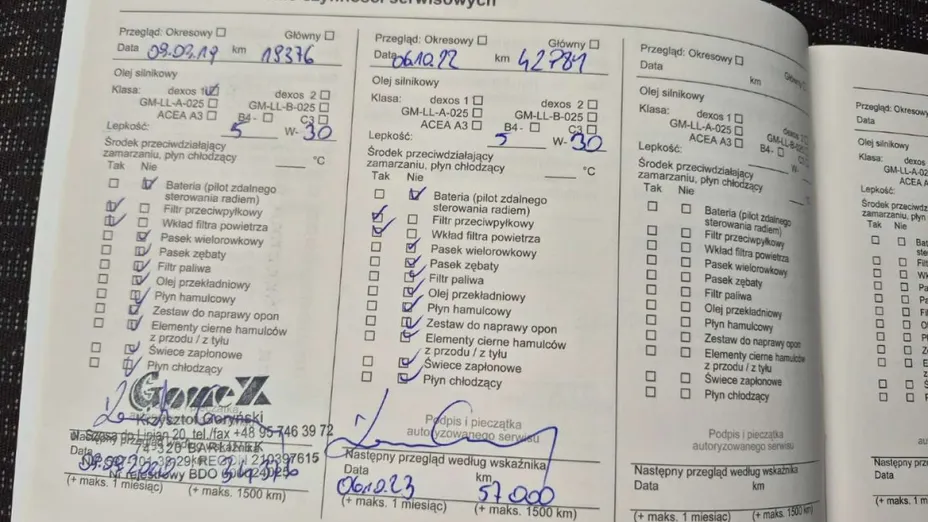 czynności serwisowych
Przegląd: Okresowy Główny
Data 09.09.19 km 19376
Olej silnikowy
Klasa: dexos 1 dexos 2
GM-LL-A-025 GM-LL-B-025
ACEA A3 B4 - C3
Lepkość: 5 W- 30
Środek przeciwdziałający
zamarzaniu, płyn chłodzący °C
Tak Nie
Bateria (pilot zdalnego
sterowania radiem)
Filtr przeciwpyłkowy
Wkład filtra powietrza
Pasek wielorowkowy
Pasek zębaty
Filtr paliwa
Olej przekładniowy
Płyn hamulcowy
Zestaw do naprawy opon
Elementy cierne hamulców
z przodu / z tyłu
Świece zapłonowe
Płyn chłodzący
Krzysztof Goryński
20, tel./fax +48 95 746 39 72
74-320 BARLINEK
Data
Nr rejestrowy BDO
(+ maks. 1 miesiąc) (+ maks. 1500 km)
Przegląd: Okresowy Główny
Data 06.10.22 km 42781
Olej silnikowy
Klasa: dexos 1 dexos 2
GM-LL-A-025 GM-LL-B-025
ACEA A3 B4 - C3
Lepkość: 5 W- 30
Środek przeciwdziałający
zamarzaniu, płyn chłodzący °C
Tak Nie
Bateria (pilot zdalnego
sterowania radiem)
Filtr przeciwpyłkowy
Wkład filtra powietrza
Pasek wielorowkowy
Pasek zębaty
Filtr paliwa
Olej przekładniowy
Płyn hamulcowy
Zestaw do naprawy opon
Elementy cierne hamulców
z przodu / z tyłu
Świece zapłonowe
Płyn chłodzący
Podpis i pieczątka
autoryzowanego serwisu
Następny przegląd według wskaźnika
Data km
06.10.23 57000
(+ maks. 1 miesiąc) (+ maks. 1500 km)
Przegląd: Okresowy Główny
Data km
Olej silnikowy
Klasa: dexos 1
GM-LL-A-025
ACEA A3 B4 -
Lepkość: W-
Środek przeciwdziałający
zamarzaniu, płyn chłodzący °C
Tak Nie
Bateria (pilot zdalnego
sterowania radiem)
Filtr przeciwpyłkowy
Wkład filtra powietrza
Pasek wielorowkowy
Pasek zębaty
Filtr paliwa
Olej przekładniowy
Płyn hamulcowy
Zestaw do naprawy opon
Elementy cierne hamulców
z przodu / z tyłu
Świece zapłonowe
Płyn chłodzący
Podpis i pieczątka
autoryzowanego serwisu
Następny przegląd według wskaźnika
Data km
(+ maks. 1 miesiąc) (+ maks. 1500 km)
Przegląd: Okresowy
Data
Olej silnikowy
Klasa: dexos
GM-LL-A
ACEA A
Lepkość:
Tak Nie